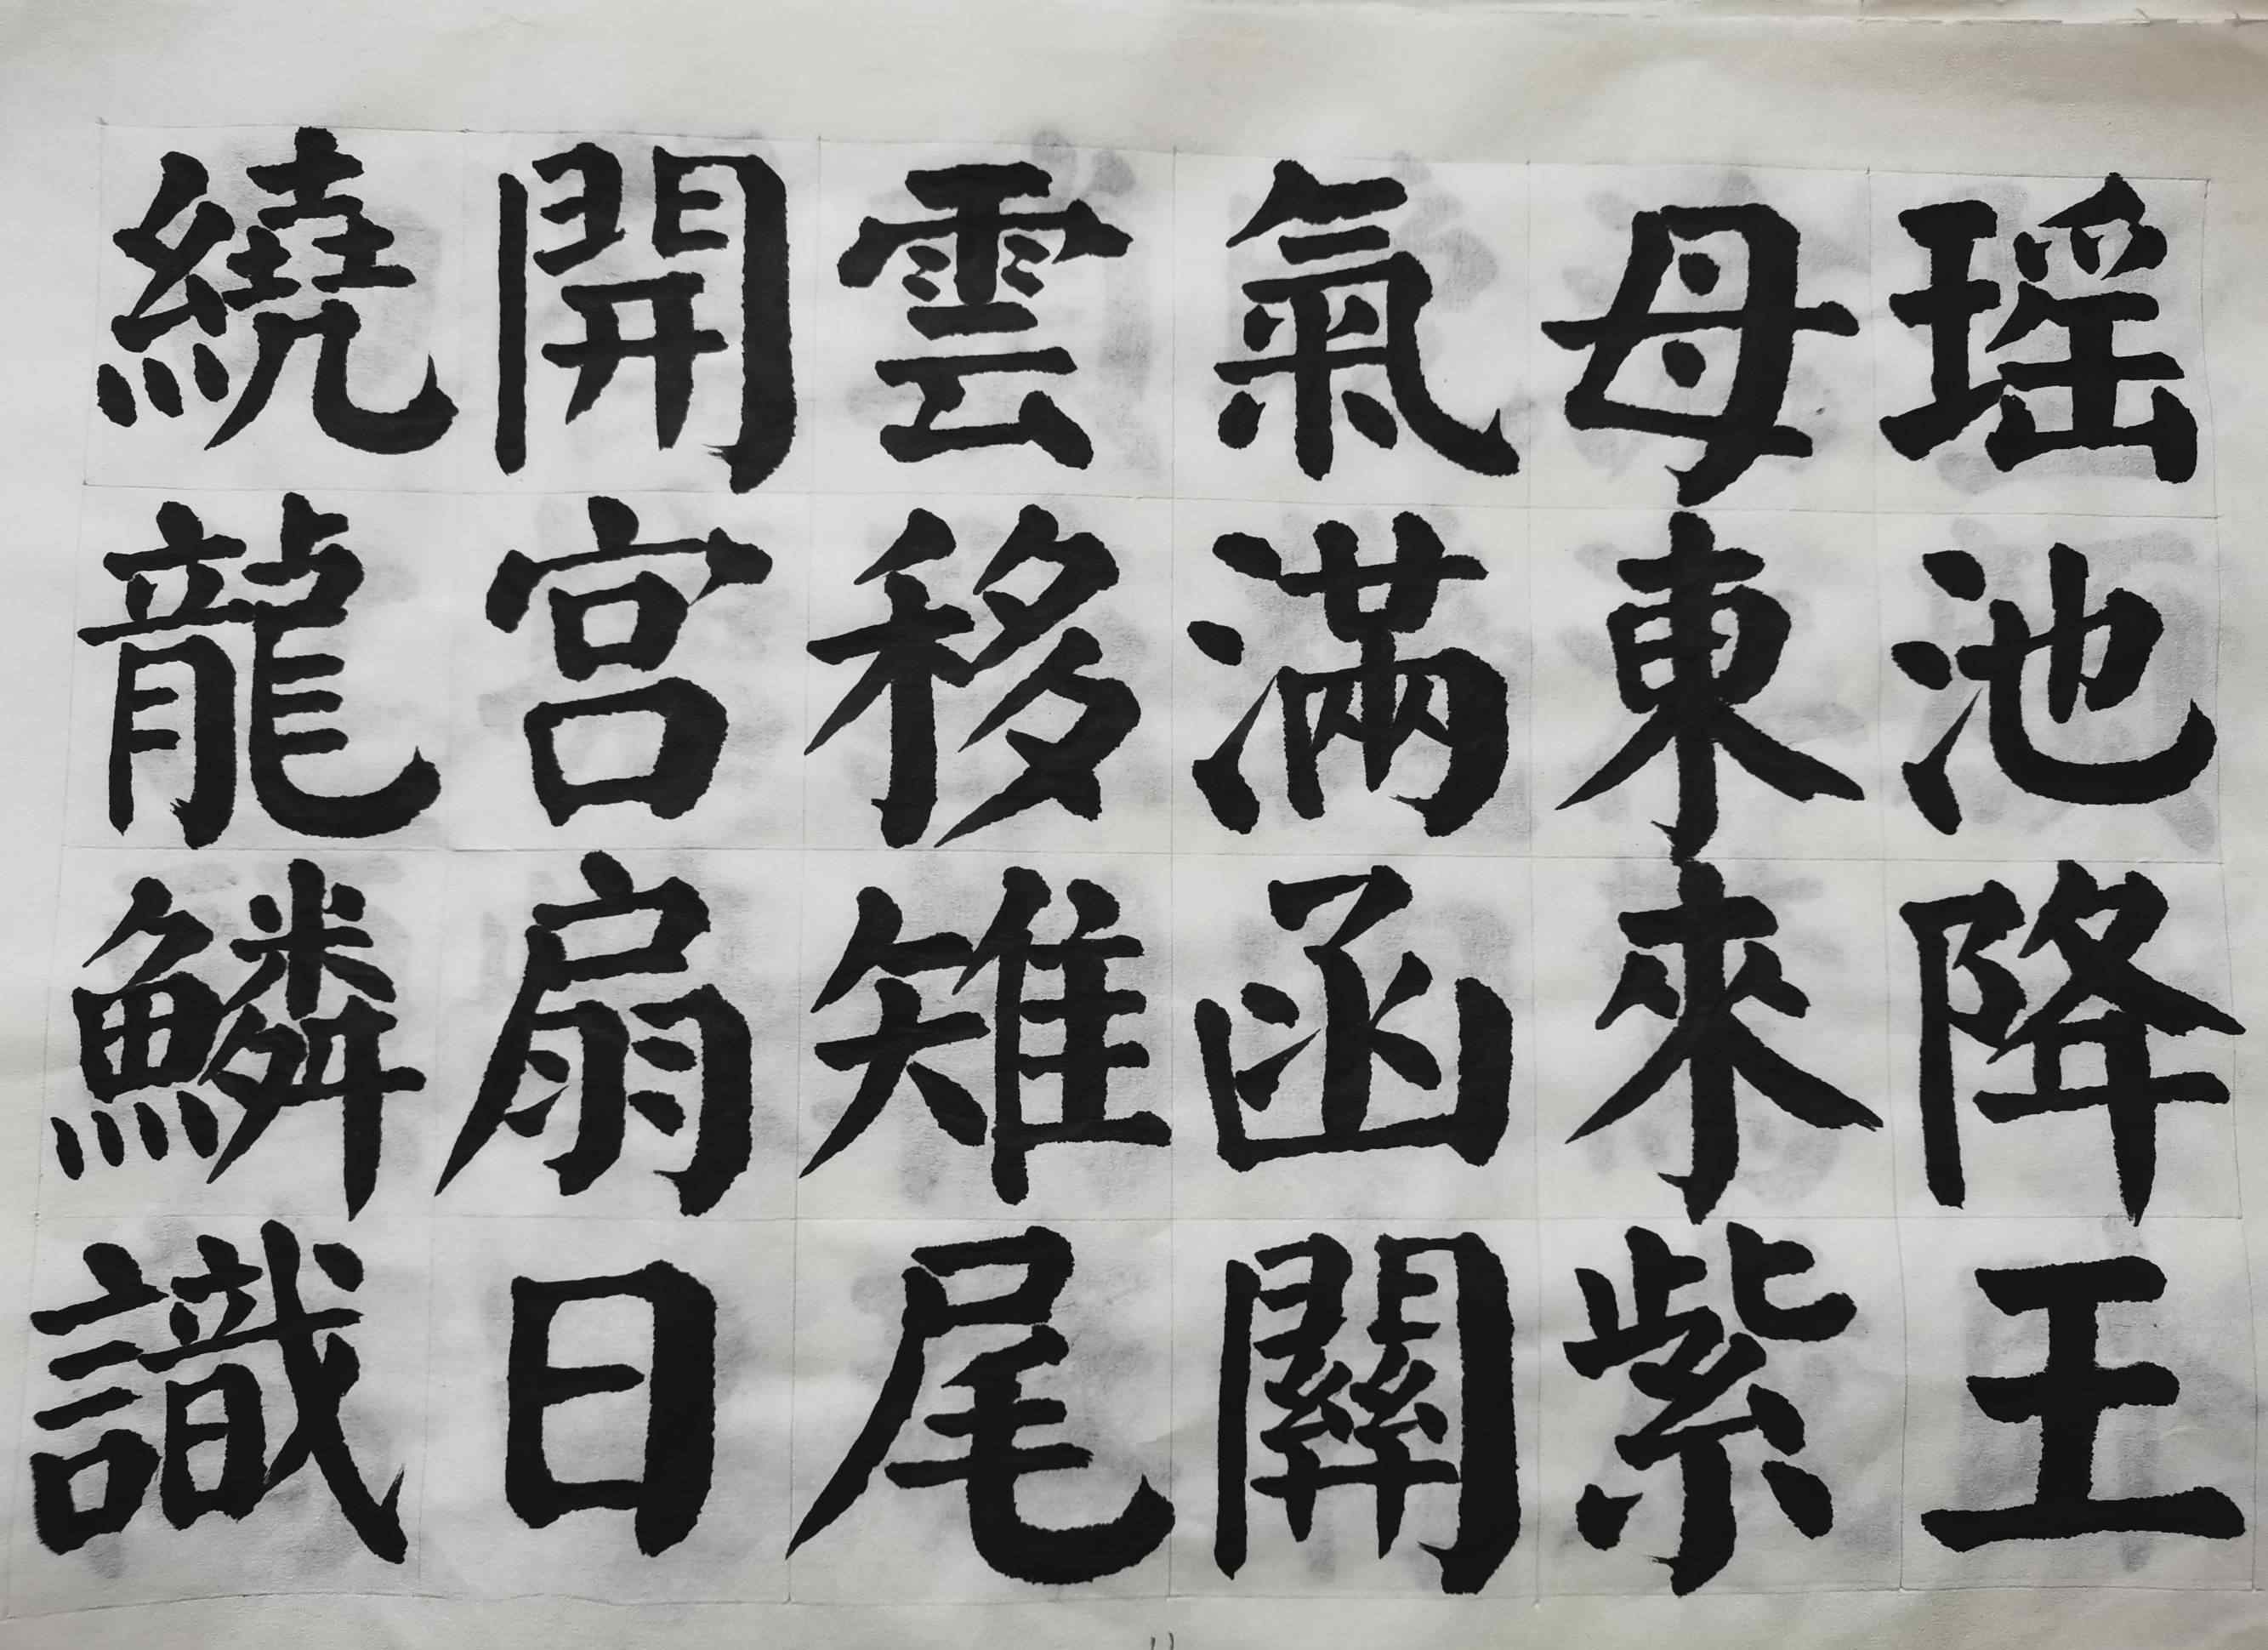 瑶池降王
母東來紫
氣滿函關
雲移雉尾
開宮扇日
繞龍鱗識